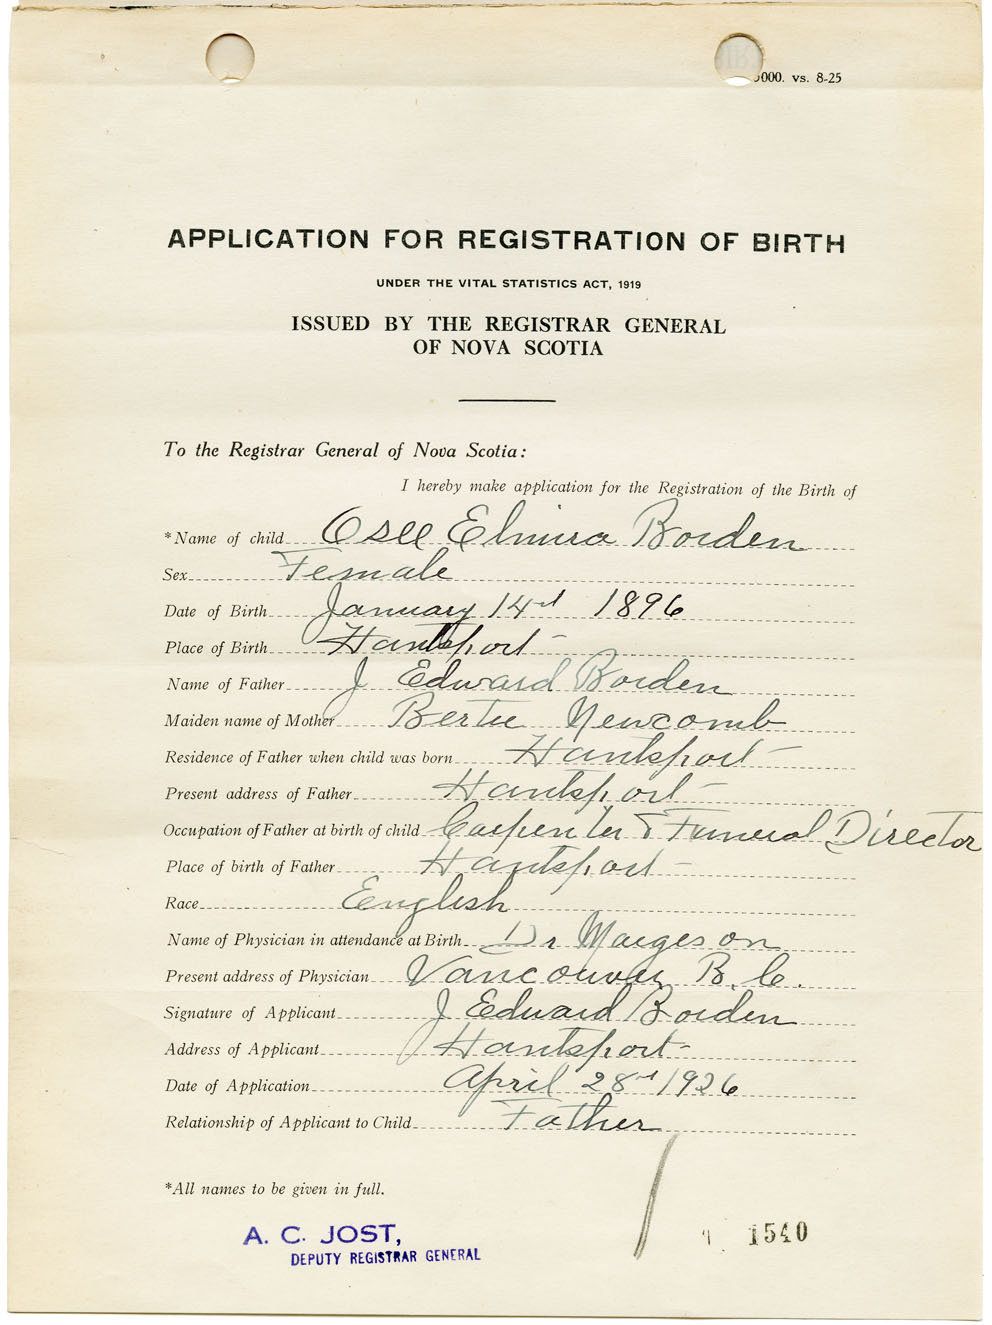 000. vs. 8-25
APPLICATION FOR REGISTRATION OF BIRTH
UNDER THE VITAL STATISTICS ACT, 1919
ISSUED BY THE REGISTRAR GENERAL
OF NOVA SCOTIA
To the Registrar General of Nova Scotia:
I hereby make application for the Registration of the Birth of
*Name of child Osee Elmira Borden
Sex Female
Date of Birth January 14rd 1896
Place of Birth Hantsport
Name of Father J Edward Borden
Maiden name of Mother Bertie Newcomb
Residence of Father when child was born Hantsport
Present address of Father Hantsport
Occupation of Father at birth of child Carpenter & Funeral Director
Place of birth of Father Hantsport
Race English
Name of Physician in attendance at Birth Dr Margeson
Present address of Physician Vancouver B.C.
Signature of Applicant J Edward Borden
Address of Applicant Hantsport
Date of Application April 28rd 1926
Relationship of Applicant to Child Father
*All names to be given in full.
A. C. JOST,
DEPUTY REGISTRAR GENERAL
1540